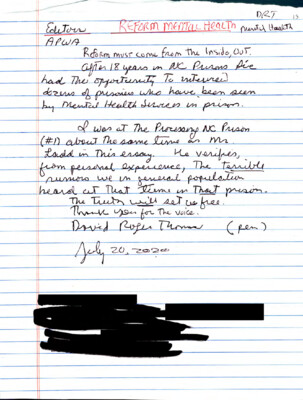 DRT
Editors REFORM MENTAL HEALTH Mental Health
APWA
Reform must come from the Inside, Out.
After 18 years in NC Prisons I've
had the opportunity to interview
dozens of prisoners who have been seen
by Mental Health Services in prison.
I was at the Processing NC Prison
(#1) about the same time as Mr.
Ladd in this essay. He verifies,
from personal experience, the terrible
rumors we in general population
heard at that time in that prison.
The truth will set us free.
Thank you for the voice.
David Roger Thomas (pen)
July 20, 2020